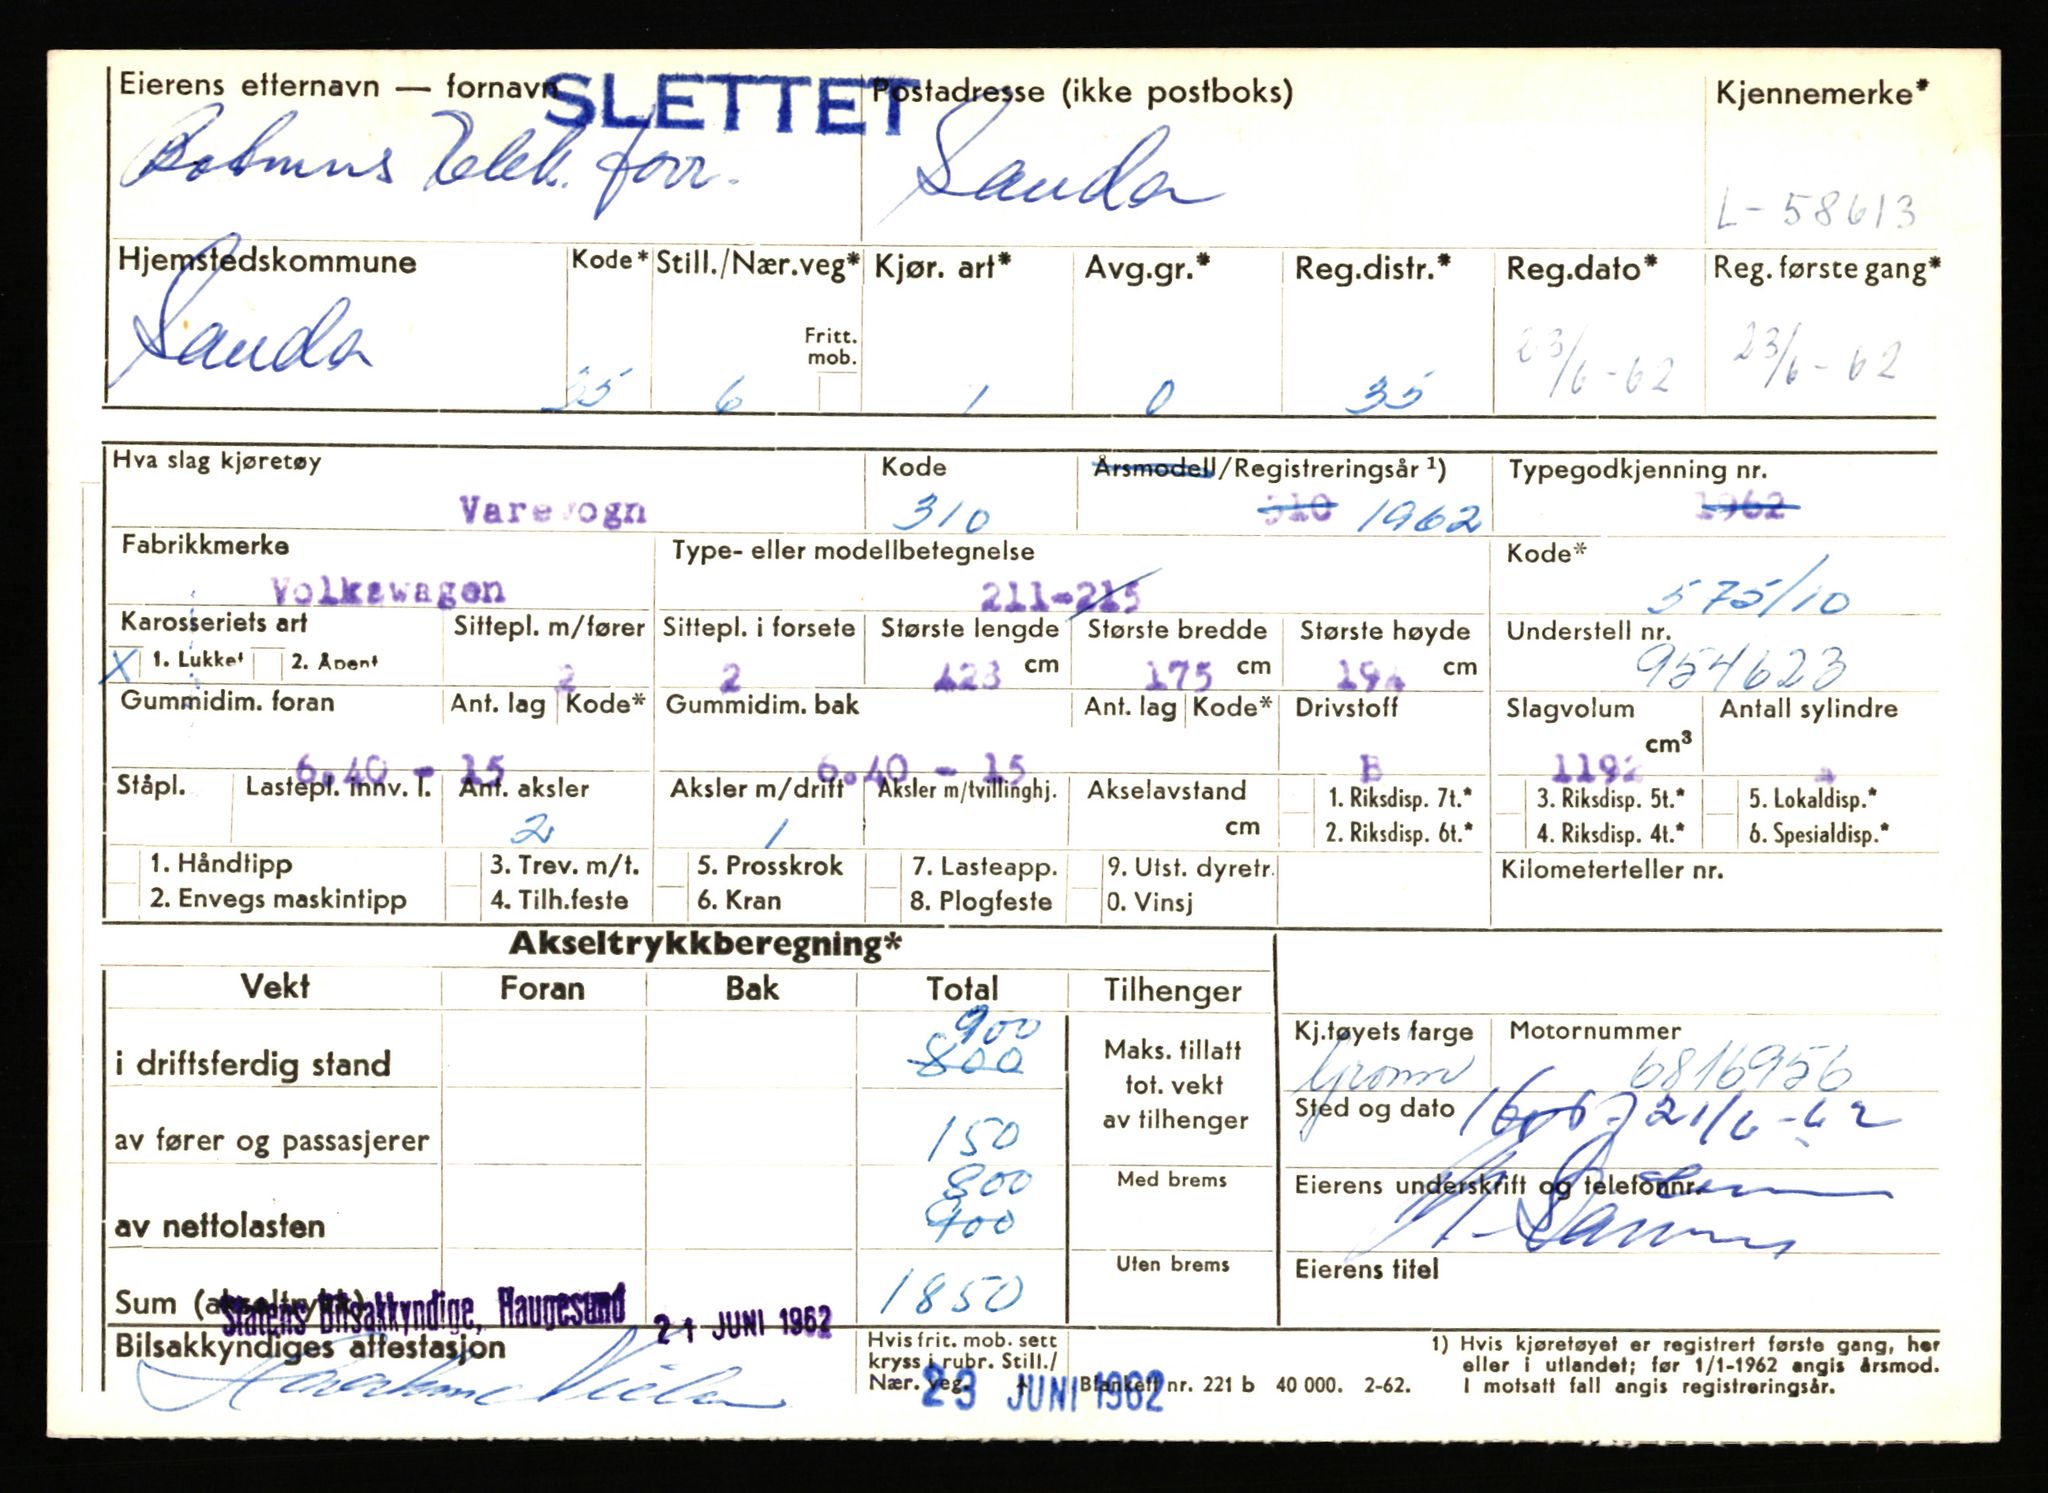 SLETTET
Eierens etternavn — fornavn Postadresse (ikke postboks) Kjennemerke*
Elek. forr. Sauda L-58613
Hjemstedskommune Kode* Still./Nær.veg* Kjør. art* Avg.gr.* Reg.distr.* Reg.dato* Reg. første gang*
Fritt. mob.
Sauda 35 6 1 0 35 23/6-62 23/6-62
Hva slag kjøretøy Kode Årsmodell/Registreringsår ¹) Typegodkjenning nr.
Varevogn 310 310 1962 1962
Fabrikkmerke Type- eller modellbetegnelse Kode*
Volkswagen 211-215 575/10
Karosseriets art Sittepl. m/fører Sittepl. i forsete Største lengde Største bredde Største høyde Understell nr.
X 1. Lukket 2. Åpent 2 2 428 cm 175 cm 194 cm 954623
Gummidim. foran Ant. lag Kode* Gummidim. bak Ant. lag Kode* Drivstoff Slagvolum cm³ Antall sylindre
6.40 - 15 6.40 - 15 B 1192 4
Ståpl. Lastepl. innv. l. Ant. aksler Aksler m/drift Aksler m/tvillinghj. Akselavstand cm 1. Riksdisp. 7t.* 3. Riksdisp. 5t.* 5. Lokaldisp.*
2 1 2. Riksdisp. 6t.* 4. Riksdisp. 4t.* 6. Spesialdisp.*
1. Håndtipp 3. Trev. m/t. 5. Prosskrok 7. Lasteapp. 9. Utst. dyretr. Kilometerteller nr.
2. Envegs maskintipp 4. Tilh.feste 6. Kran 8. Plogfeste 0. Vinsj
Akseltrykkberegning*
Vekt Foran Bak Total Tilhenger
900
i driftsferdig stand 800 Maks. tillatt tot. vekt av tilhenger
Kj.tøyets farge Motornummer
Grønn 6816956
Sted og dato 21/6-62
av fører og passasjerer 150
800 Med brems Eierens underskrift og telefonnr.
av nettolasten 400
Uten brems Eierens titel
Sum (akseltrykk) 1850
Statens Bilsakkyndige, Haugesund 21 JUNI 1962
Bilsakkyndiges attestasjon
Hvis frit. mob. sett
kryss i rubr. Still./
Nær. veg. Blankett nr. 221 b 40 000. 2-62.
23 JUNI 1962
1) Hvis kjøretøyet er registrert første gang, her
eller i utlandet; før 1/1-1962 angis årsmod.
I motsatt fall angis registreringsår.